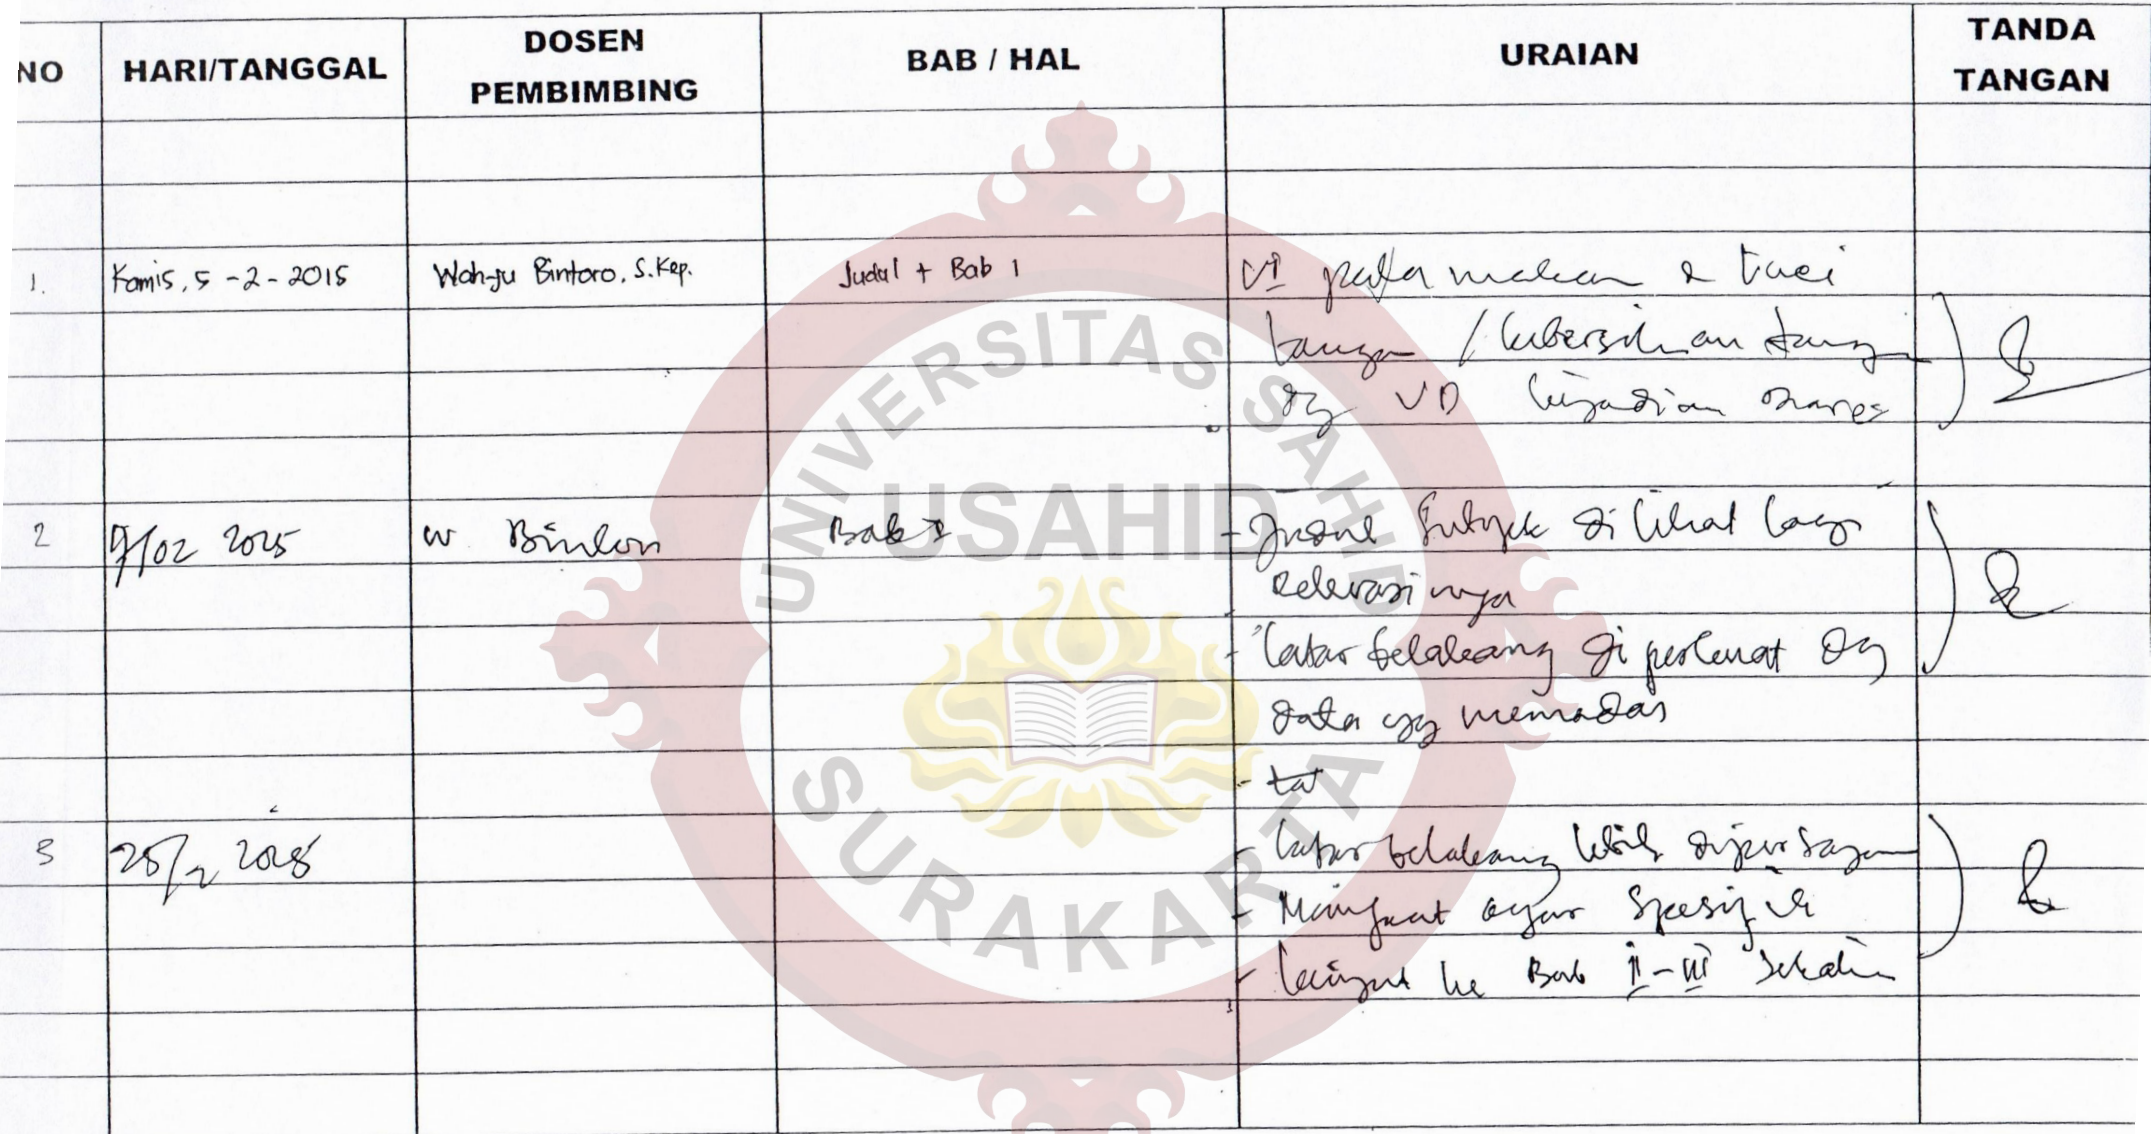 NO HARI/TANGGAL DOSEN PEMBIMBING BAB / HAL URAIAN TANDA TANGAN
1. Kamis, 5 -2- 2015 Wahyu Bintoro, S.Kep. Judul + Bab 1 pola makan & cuci
tangan / kebersihan tangan
dg VD kejadian diare
2 9/02 2015 w Bintoro Bab I - Judul Subyek di lihat lagi
relevansinya
- latar belakang di perkuat dg
data yg memadai
3 25/2 2015 - latar belakang lebih dipertajam
- Manfaat agar Spesifik
- lanjut ke Bab II - III
UNIVERSITAS SAHID
USAHID
SURAKARTA